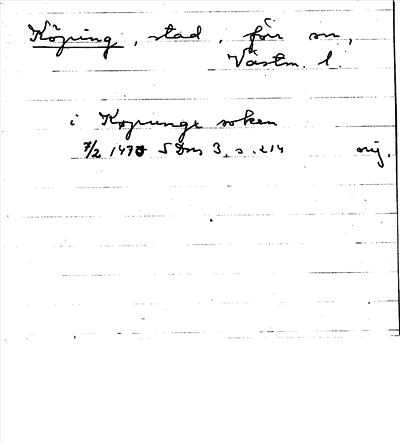 Köping, stad, förr sn,
Västm. l.
i Kopunge soken
7/2 1470 SDns 3, s. 214 orig.